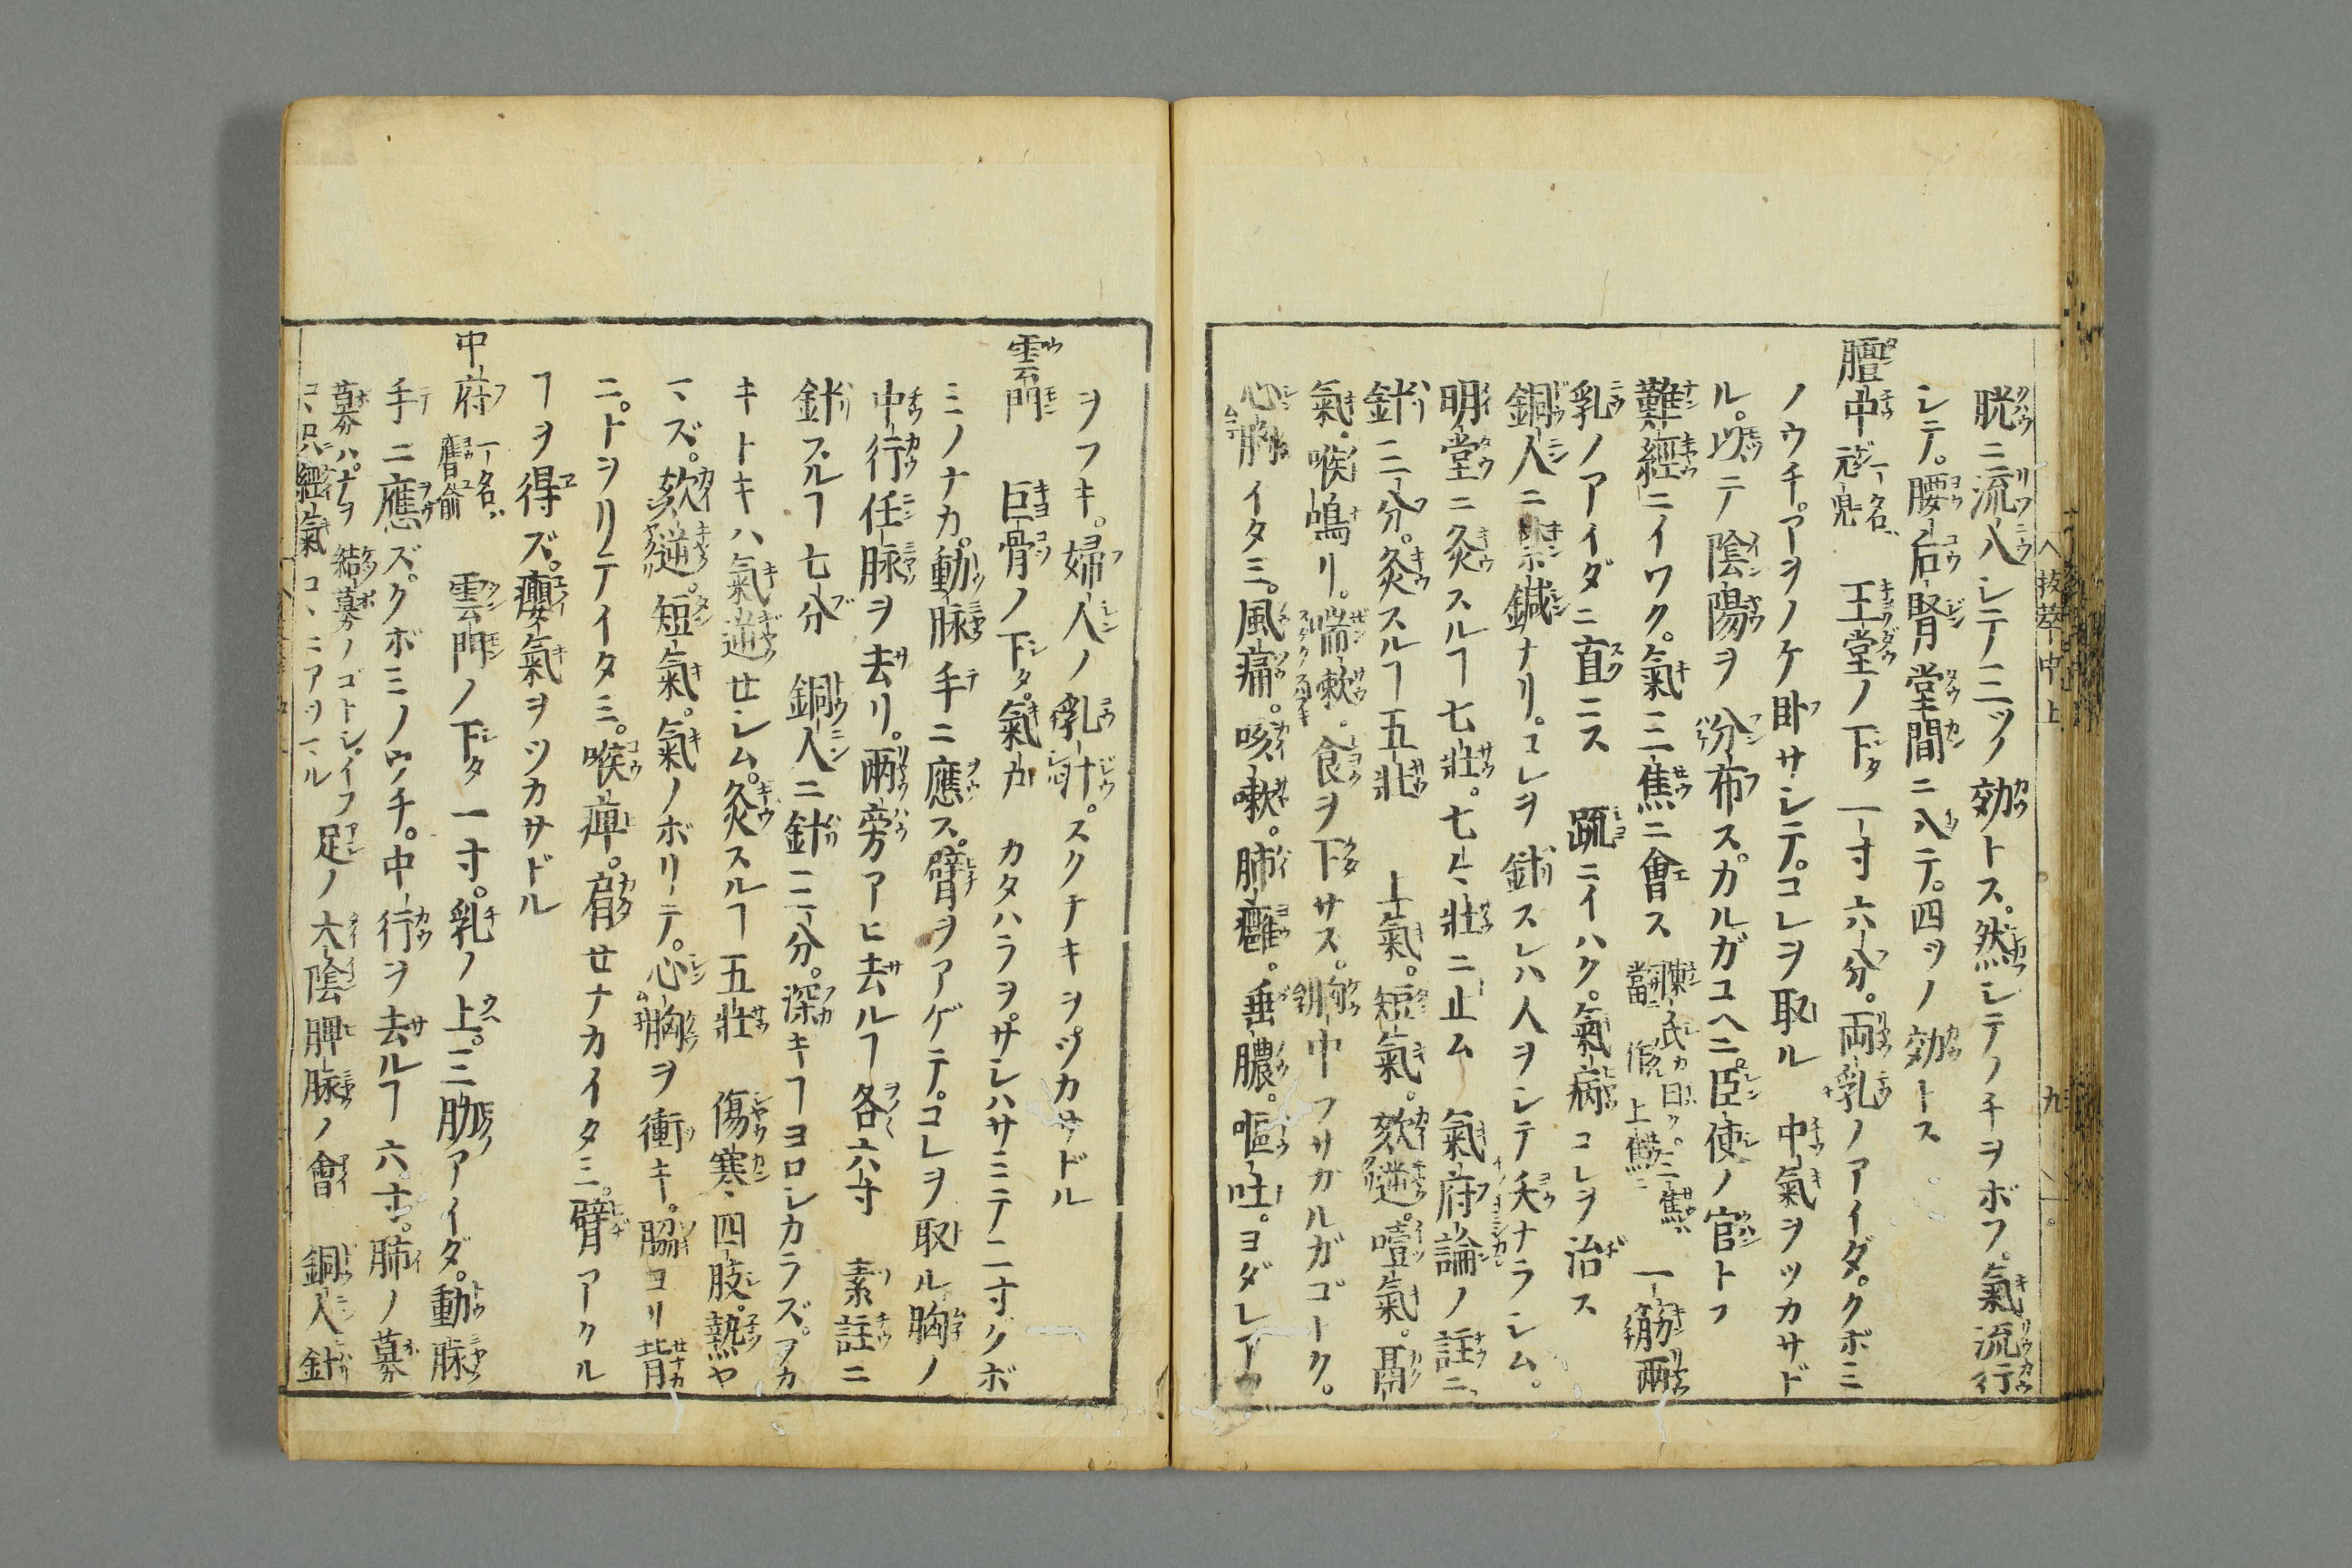 胱ニ流入シテ三ツノ効トス。然シテノチヲボフ。氣流行
シテ。腰后腎堂間ニ入テ。四ツノ効トス
膻中 一名ハ元兒 玉堂ノ下タ一寸六分。両乳ノアイダ。クボミ
ノウチ。アヲノケ卧サシテ。コレヲ取ル 中氣ヲツカサド
ル。以テ陰陽ヲ分布ス。カルガユヘニ。臣使ノ官トス
難經ニイワク。氣三焦ニ會ス 陳氏カ曰ク。三焦ハ當ニ作ル上焦ニ 一筋兩
乳ノアイダニ直ニス 䟽ニイハク。氣病コレヲ治ス
銅人ニ禁鍼ナリ。コレヲ針スレハ人ヲシテ夭ナラシム。
明堂ニ灸スルヿ七壯。七七壯ニ止ム 氣府論ノ註ニ、
針三分。灸スルヿ五壯 上氣。短氣。欬逆。噎氣。膈
氣。喉鳴リ。喘嗽。食ヲ下サズ。胸中フサガルガゴトク。
心胸イタミ。風痛。咳嗽。肺癰。垂膿。嘔吐。ヨダレアワ
ヲフキ。婦人ノ乳汁。スクナキヲツカサドル
雲門 巨骨ノ下タ。氣カ カタハラヲサシハサミテ二寸クボ
ミノナカ。動脉手ニ應ス。臂ヲアゲテ。コレヲ取ル胸ノ
中行任脉ヲ去リ。兩旁アヒ去ルヿ各六寸 素註ニ
針スルヿ七分 銅人ニ針三分。深キヿヨロシカラズ。フカ
キトキハ氣逆セシム。灸スルヿ五壯 傷寒。四肢。熱ヤ
マズ。欬逆。短氣。氣ノボリテ。心胸ヲ衝キ。脇ヨリ背
ニ。トヲリテイタミ。喉痺。肩セナカイタミ。臂アクル
ヿヲ得ズ。癭氣ヲツカサドル
中府 一名ハ膺俞 雲門ノ下タ一寸。乳ノ上。三肋アイダ。動脉
手ニ應ズ。クボミノウチ。中行ヲ去ルヿ六寸。肺ノ募
募ハナヲ結募ノゴトシ。イフコヽロハ經氣コヽニアツマル 足ノ太陰脾脉ノ會 銅人針
拔萃中上 九